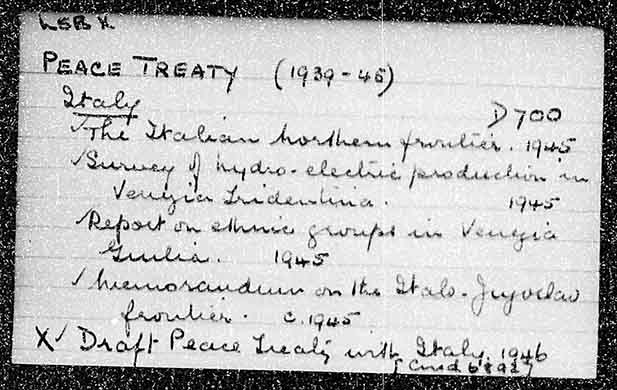 PEACE TREATY (1939-45)
Italy
D700
✓The Italian Northern frontier. 1945
✓Survey of hydro-electric production in
Venezia Tridentina. 1945
✓Report on ethnic groups in Venezia
Giulia. 1945
✓Memorandum on the Italo-Jugoslav
frontier. c.1945
X✓ Draft Peace Treaty with Italy. 1946
[Cmd 6892]